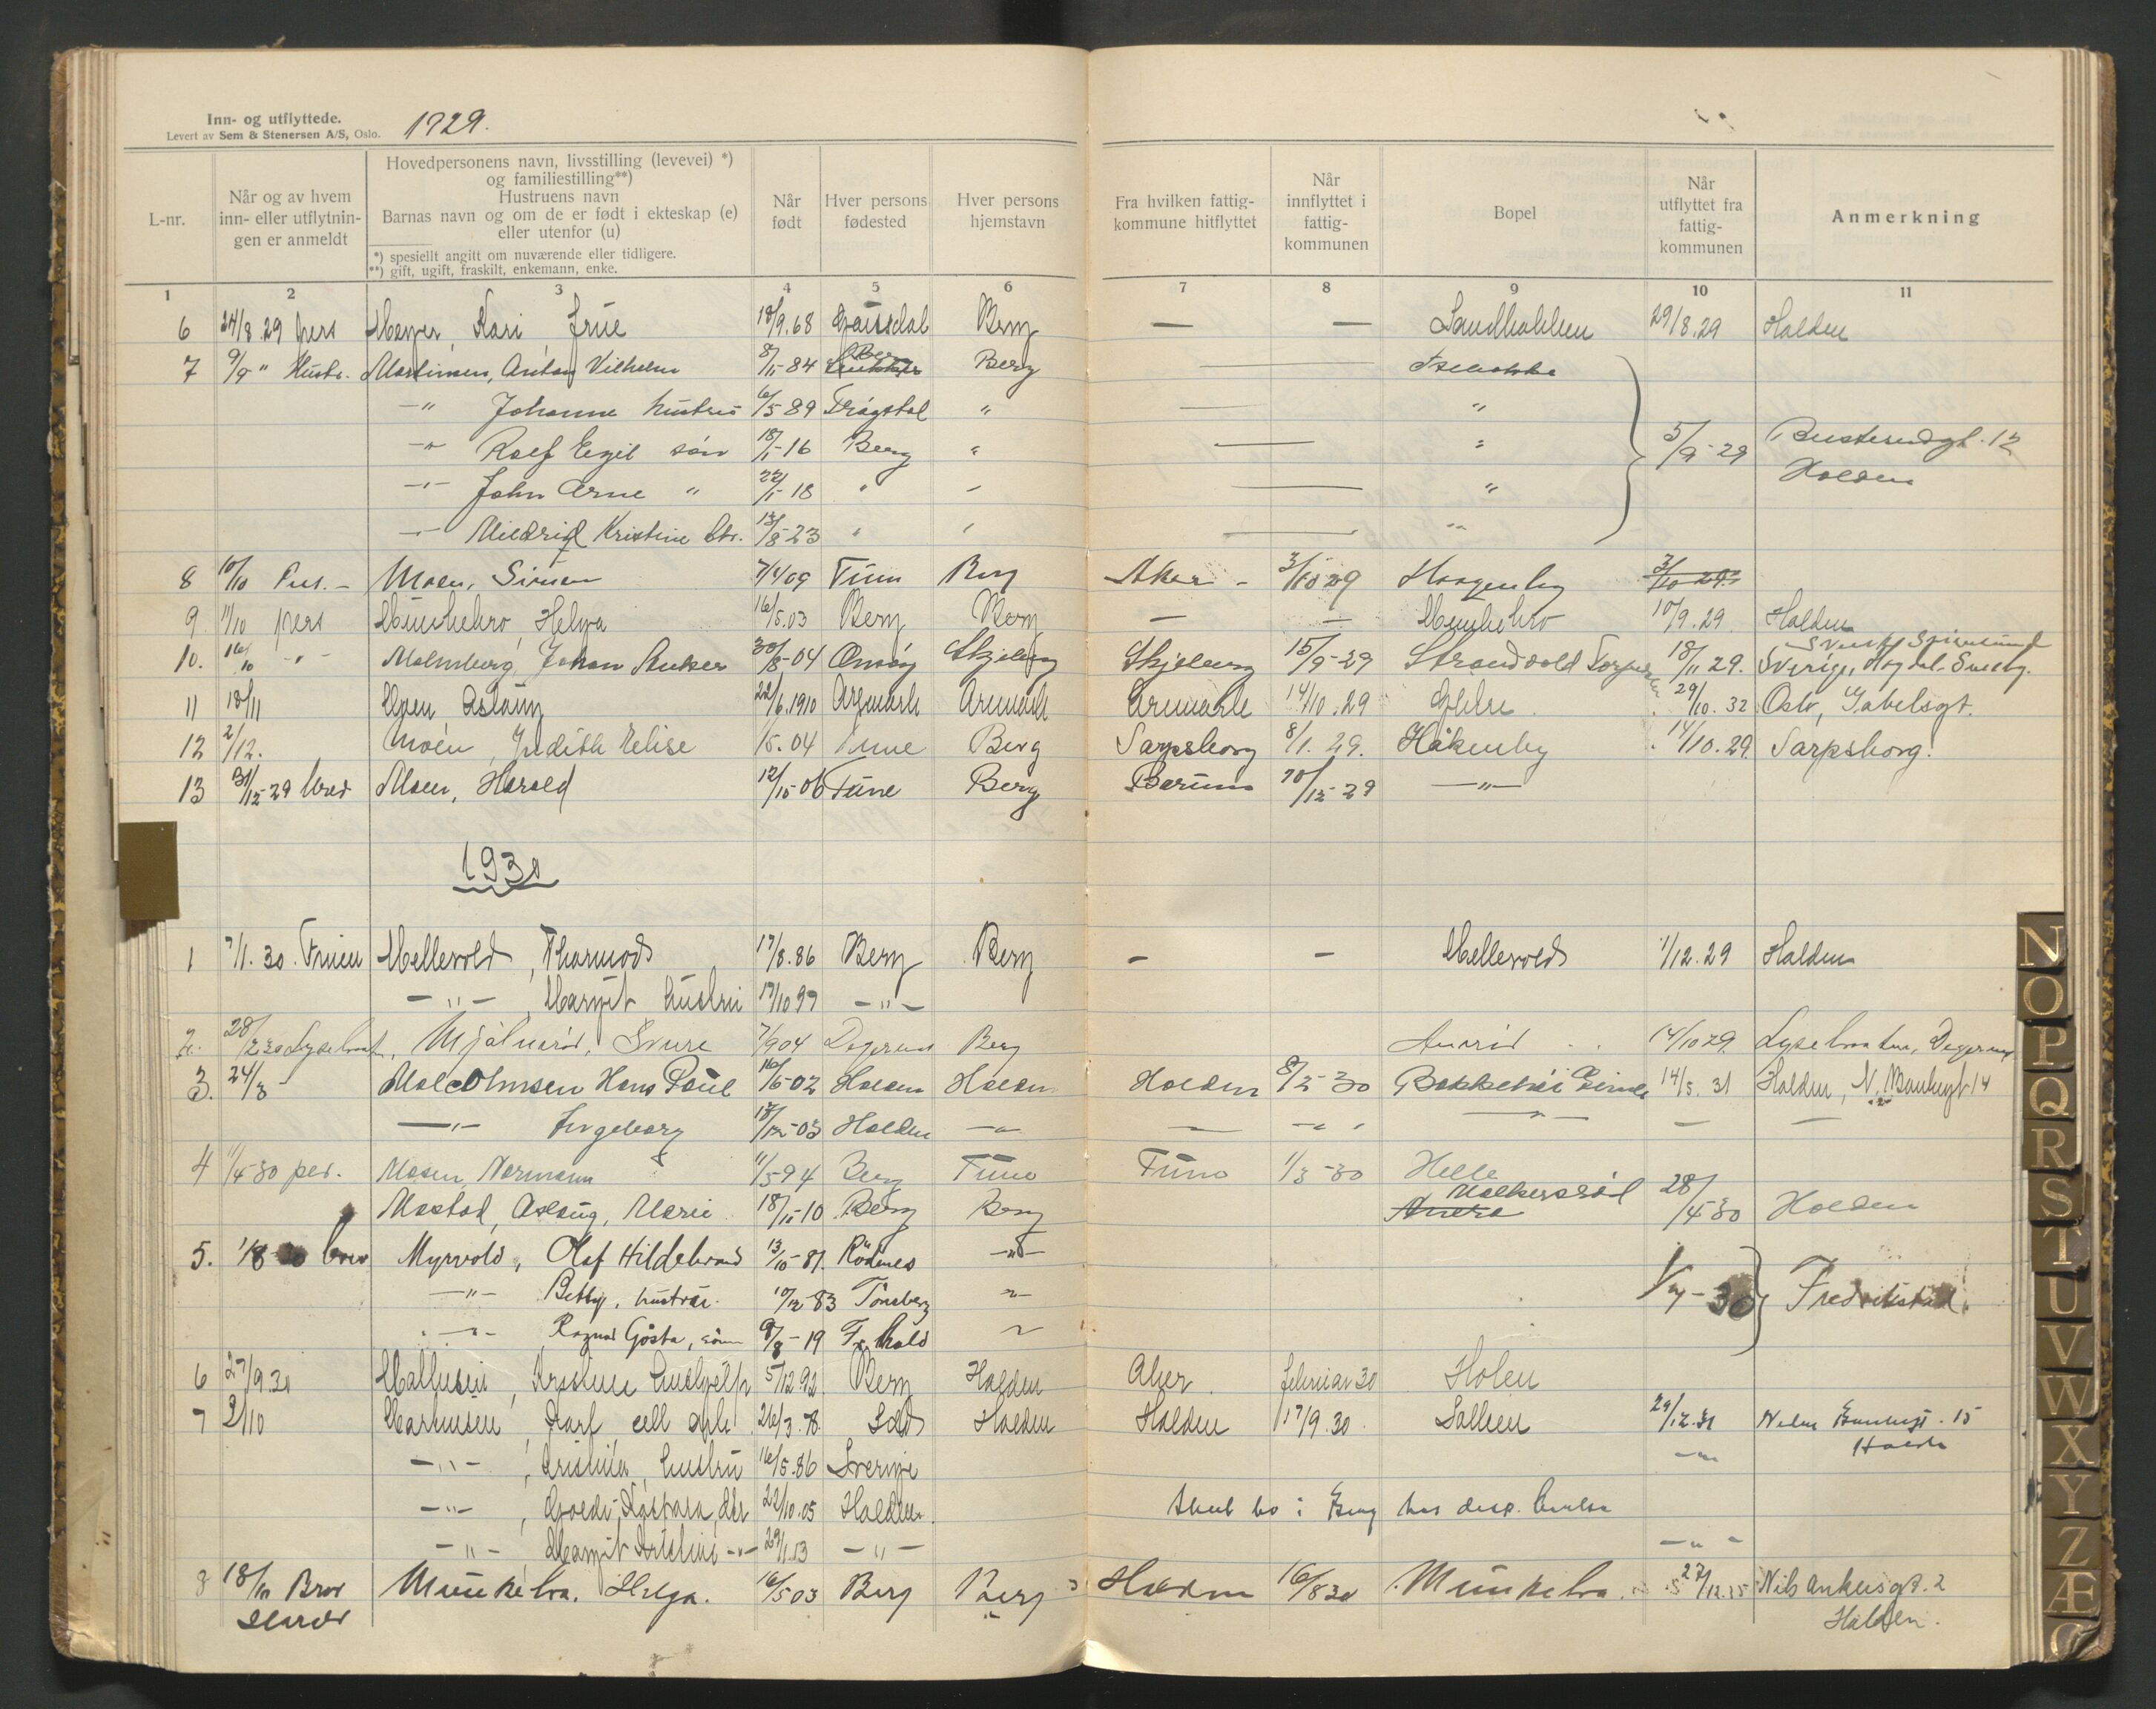 Inn- og utflyttede.
Levert av Sem & Stenersen A/S, Oslo.
1929.
L-nr.
Når og av hvem inn- eller utflytnin- gen er anmeldt
Hovedpersonens navn, livsstilling (levevei) *)
og familiestilling**)
Hustruens navn
Barnas navn og om de er født i ekteskap (e)
eller utenfor (u)
*) spesiellt angitt om nuværende eller tidligere.
**) gift, ugift, fraskilt, enkemann, enke.
Når født
Hver persons fødested
Hver persons hjemstavn
Fra hvilken fattig- kommune hitflyttet
Når innflyttet i fattig- kommunen
Bopel
Når utflyttet fra fattig- kommunen
Anmerkning
1 2 3 4 5 6 7 8 9 10 11
6 24/8.29 pers Meyer, Kari, frue 18/9.68 Gausdal Berg — — 29/8.29 Halden
7 9/9 " Hustr. Martinsen, Anton Vilhelm 8/11-84 Berg Berg —
-"- Johanne hustru 6/5 89 Trøgstad " — "
-"- Rolf Egil sønn 18/1-16 Berg " — " 5/9-29 12
-"- John Arne " 22/1-18 " " — " Halden
-"- Mildrid Kristine dtr. 13/8-23 " " — "
8 10/10 Pers. - Moen, Simen 7/4 09 Tune Berg Aker - 3/10 29 3/10 29
9 11/10 pers Munkebro, Helga 16/5.03 Berg Berg — — Munkebro 10/9.29 Halden
10. 16/10 -"- Malmberg, Johan Anker 30/8-04 Onsøy Skjeberg Skjeberg 15/9-29 Strandvold 18/11 29. Sverige,
11 18/11 Moen, Aslaug 22/6.1910 Aremark Aremark Aremark 14/10.29 29/10.32 Oslo, Gabelsgt.
12 2/12. Moen, Judith Elise 1/5.04 Tune Berg Sarpsborg 8/1.29. Håkenby 14/10.29 Sarpsborg.
13 31/12-29 Moen, Harald 12/10-06 Tune Berg Bærum 10/12-29 -"-
1930
1 7/1.30. Fruen Mellevold, Thormod 17/8.86 Berg Berg — — Mellevold 1/12.29 Halden
-"- , Margit hustru 19/10 99 -"-
2. 28/2 30 Mjølnerød, Sverre 7/9 04 Degernes Berg 14/10 29. Degernes
3. 24/3 Malcolmsen Hans Paul 16/6-02 Halden Halden Halden 8/2-30 14/5.31 Halden, N. Bankegt 14
-"- Ingeborg 18/12-03 Halden -"- — -"- -"- — —
4 11/4-30 per. Moen, Normann 11/5 94 Berg Tune Tune 1/3-30 Helle
Mostad, Aslaug, Marie 18/11-10 Berg Berg 28/4-30 Halden
5. 1/8 30 brev Myrvold, Olaf Hildebrand 13/10-81. Rødenes -"-
-"- Betty, hustru. 10/12-83 Tønsberg -"- 1/7-30 Fredrikstad.
-"- Ragnar Gösta, sønn 9/8-19 Fr.hald "
6 27/9.30 Mathisen, 5/12.92 Berg Halden Aker februar 30 Holen
7 2/10 Markussen, Karl 26/3.78 Idd Halden Halden 17/9.30. 29/12.31 15
-"- , Kristina, hustru 16/5.86 Sverige -"- Halden
-"- , dtr 22/10.05 Halden. Skal bo i Berg
-"- , Margit Kristine -"- 29/1.13 -"- -"-
8 18/10 Brev Munkebro, Helga. 16/5 03 Berg Berg Halden 16/8 30 Munkebro. 27/12.35 Nils Ankersgt. 2
Halden.
N O P Q R S T U V W X Y Z Æ